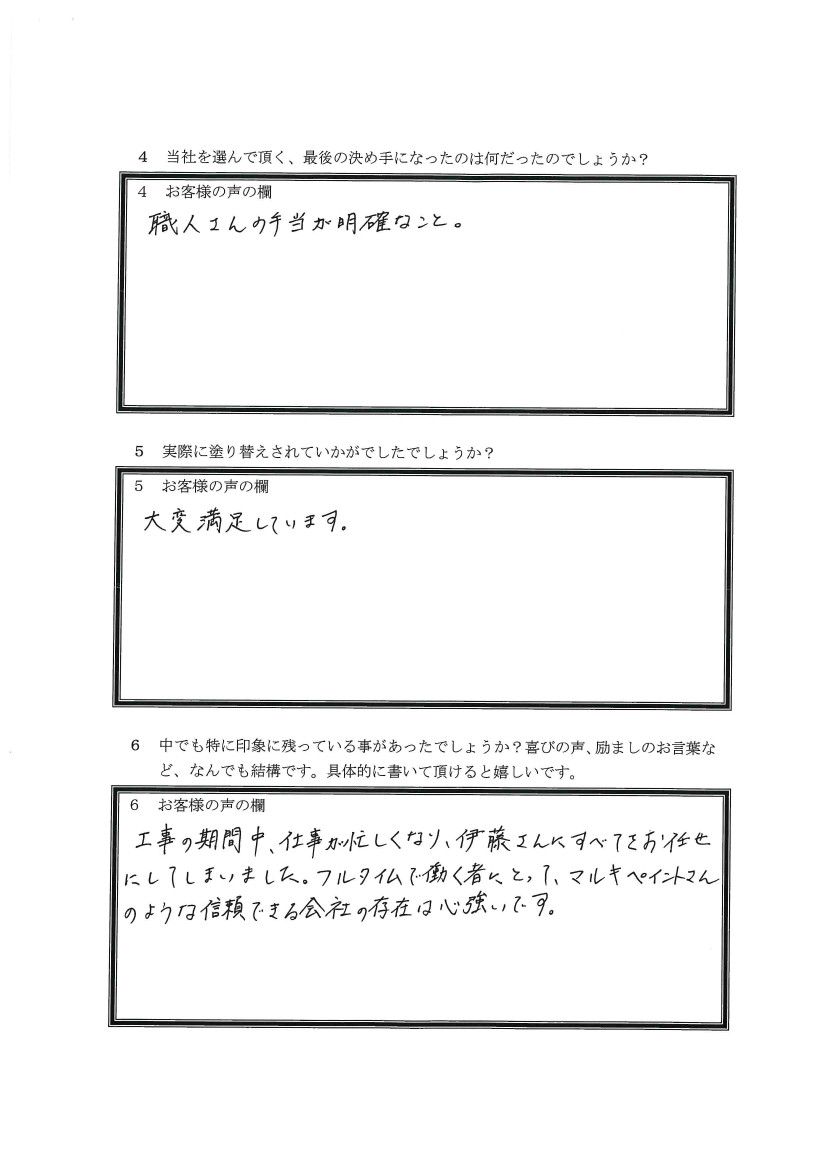 4 当社を選んで頂く、最後の決め手になったのは何だったのでしょうか？
4 お客様の声の欄
職人さんの手当が明確なこと。
5 実際に塗り替えされていかがでしたでしょうか？
5 お客様の声の欄
大変満足しています。
6 中でも特に印象に残っている事があったでしょうか？喜びの声、励ましのお言葉な
ど、なんでも結構です。具体的に書いて頂けると嬉しいです。
6 お客様の声の欄
工事の期間中、仕事が忙しくなり、伊藤さんにすべてをお任せ
にしてしまいました。フルタイムで働く者にとって、マルキペイントさん
のような信頼できる会社の存在は心強いです。